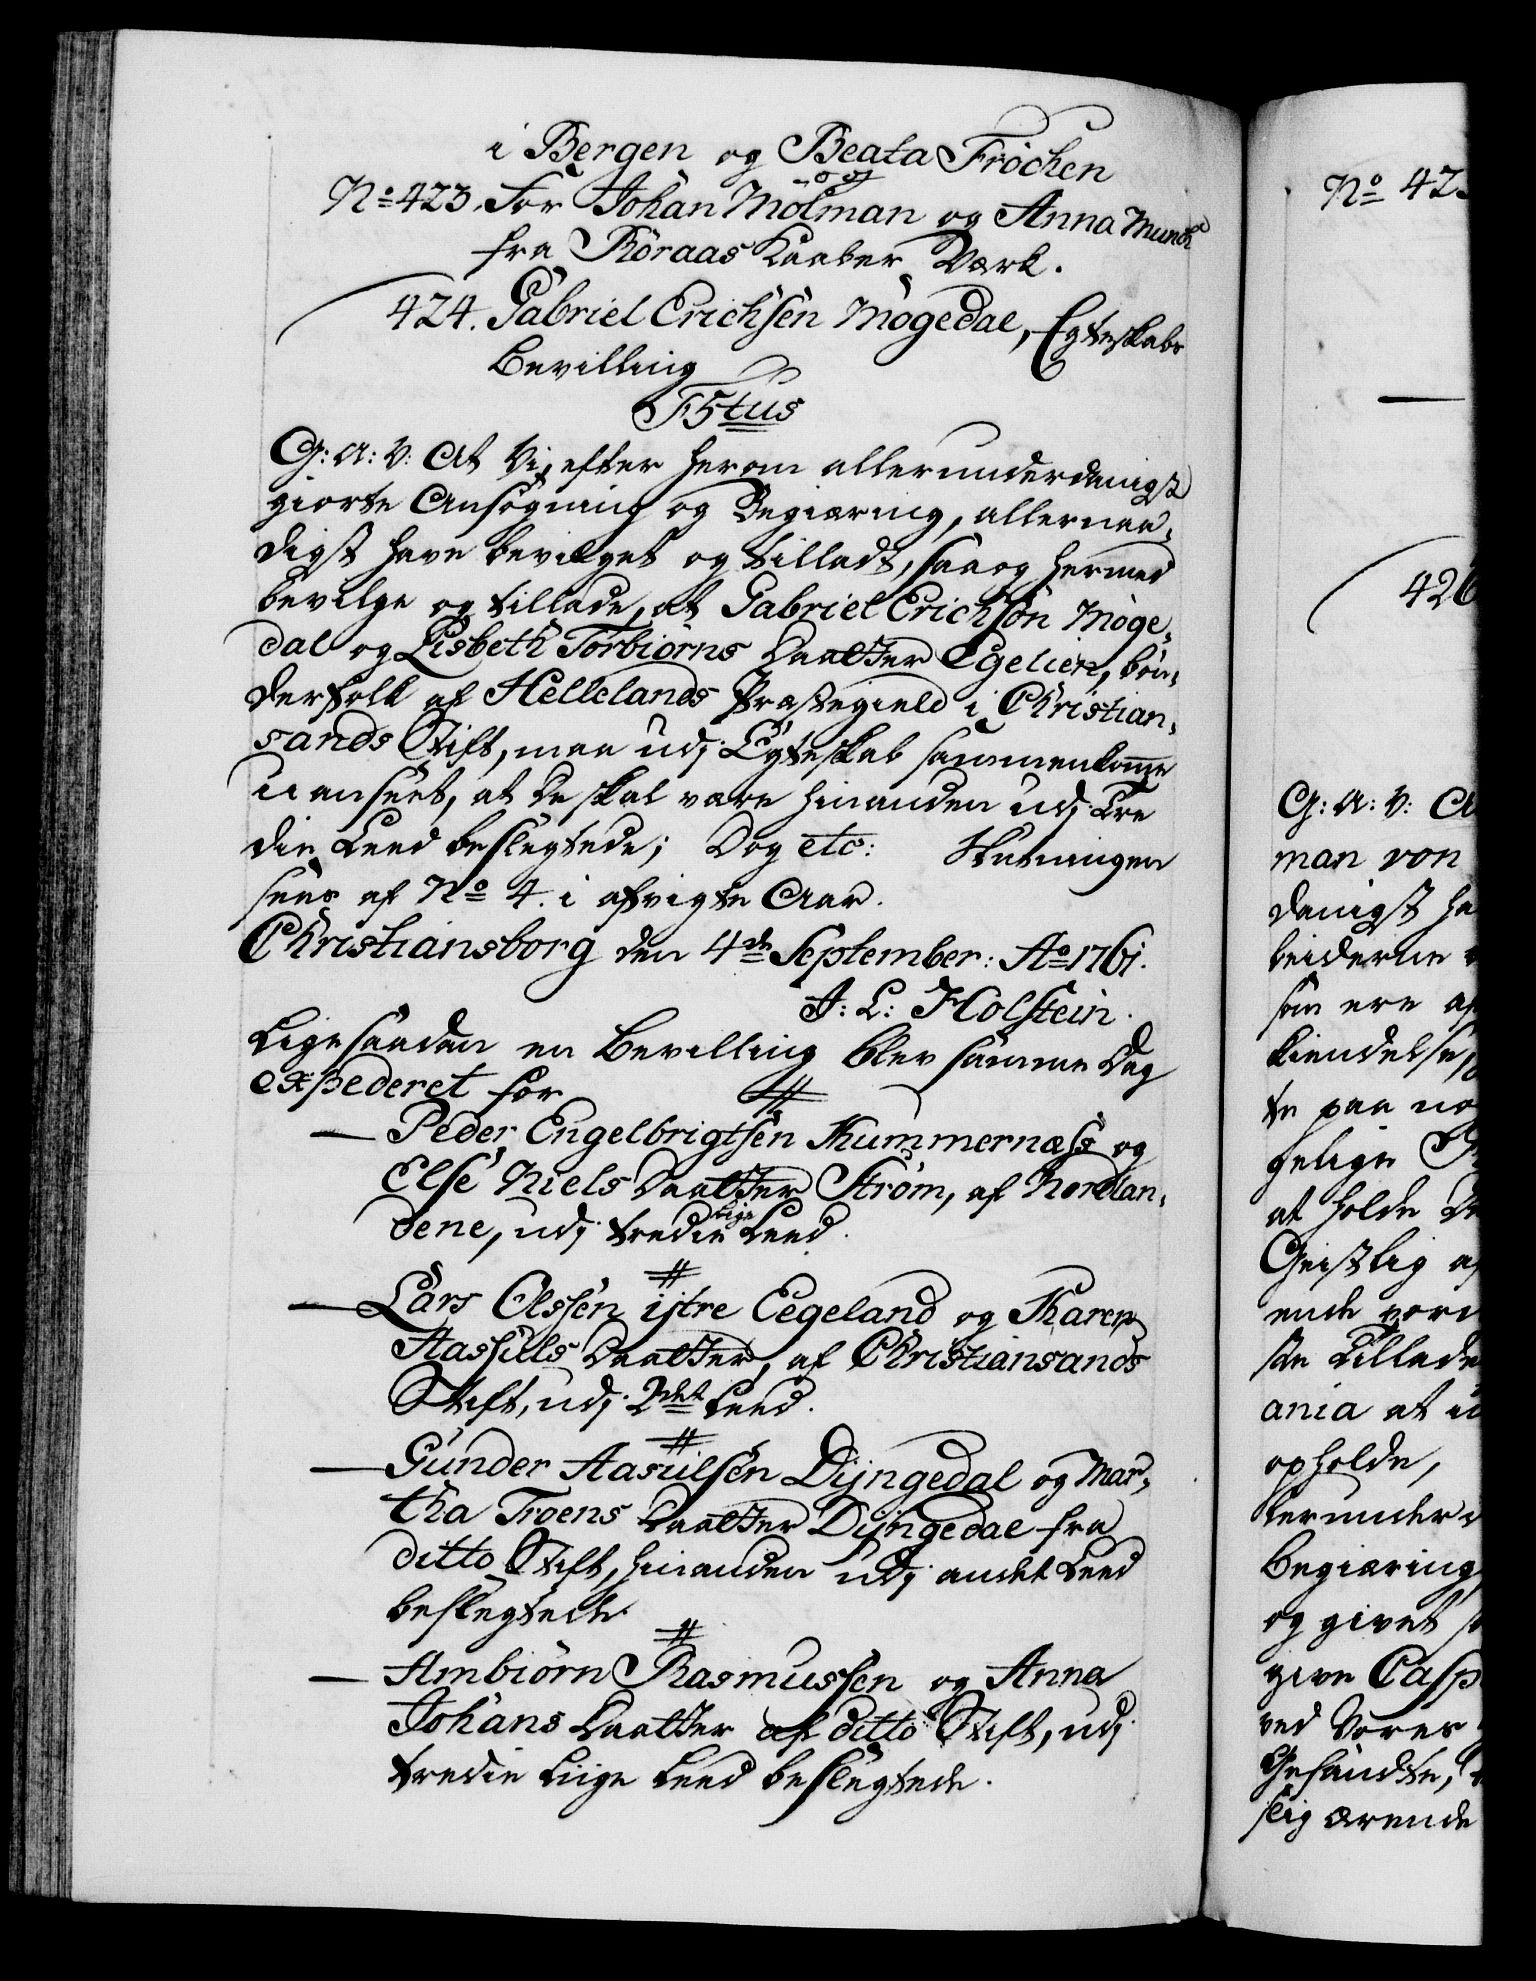 i Bergen og Beata Fröchen
No 423. For Johan Mölman og Anna Munch
fra Röraas Kaaber Værk.
424. Gabriel Erichsen Mögedal, Egteskabs
Bevilling
F5tus
G: A: V: At Vi, efter herom allerunderdanigst
giorte Ansøgning og Begiæring, allernaa,
digst have bevilget og tilladt, saa og hermed
bevilge og tillade, at Gabriel Erichsön Möge,
dal og Lisbeth Torbiörns Daatter Egelien, bön,
derfolk af Hellelands Præstegield i Christian,
sands Stift, maa udj Egteskab sammenkomme
uanseet, at De skal være hinanden udj Tre
die Leed beslegtede; Dog etc: Slutningen
sees af No 4. i afvigte Aar.
Christiansborg den 4de September: Ao 1761.
J: L: Holstein.
Ligesaadan en Bevilling blev samme Dag
expederet for
Peder Engelbrigtsen Kummernæss og
Else Niels Daatter Strøm, af Nordlan,
dene, udj tredie Lige Leed.
Lars Olssen istre Eegeland og Karen
Aassuls Daatter, af Christiansands
Stift, udj 2det Leed.
Gunder Aasulsen Dyngedal og Mar,
tha Troens Daatter Dyngedal fra
ditto Stift, hinanden udj andet Leed
beslegtede.
Ambiörn Rasmussen og Anna
Johans Daatter af ditto Stift, udj
tredie Liige Leed beslegtede.
No 42
426
G: A: V: A
man von
danigst ha
beiderne
som ere af
kiendelse,
te paa no
gelige
at holde
Geistlig
ende
ste Tillade
ania at
opholde,
lerunder
Begiæring
og givet
give Casp
ved Vores
Gesandte,
slig ærende